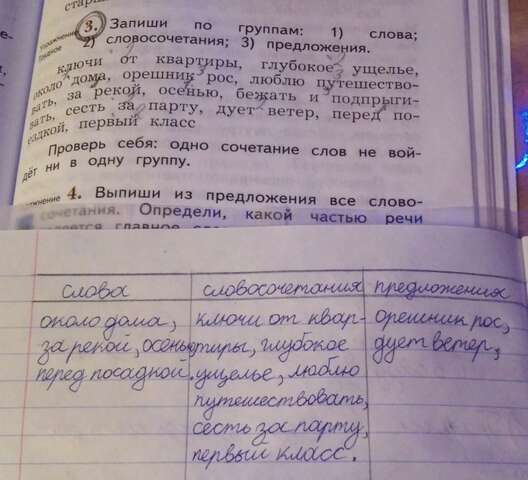 стар
3. Запиши по группам: 1) слова;
2) словосочетания; 3) предложения.
ключи от квартиры, глубокое ущелье,
около дома, орешник рос, люблю путешество-
вать, за рекой, осенью, бежать и подпрыги-
вать, сесть за парту, дует ветер, перед по-
ездкой, первый класс
Проверь себя: одно сочетание слов не вой-
дёт ни в одну группу.
4. Выпиши из предложения все слово-
сочетания. Определи, какой частью речи
слова словосочетания предложения
около дома, ключи от квар- орешник рос,
за рекой, осенью тиры, глубокое дует ветер,
перед посадкой. ущелье, люблю
путешествовать,
сесть за парту,
первый класс.